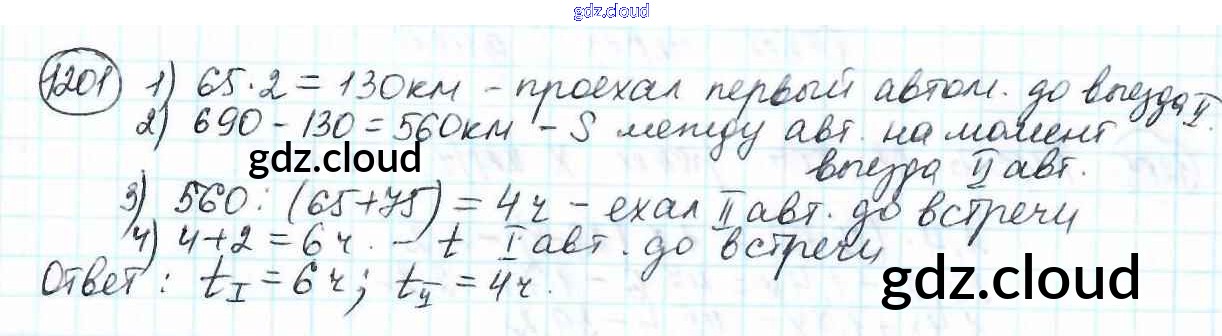 gdz.cloud
1201 1) 65·2=130км – проехал первый автом. до выезда II.
2) 690–130=560км – S между авт. на момент
gdz.cloud
выезда II авт.
3) 560:(65+75)=4ч – ехал II авт. до встречи
4) 4+2=6ч. – t I авт. до встречи
Ответ: t_I=6ч; t_II=4ч.
gdz.cloud